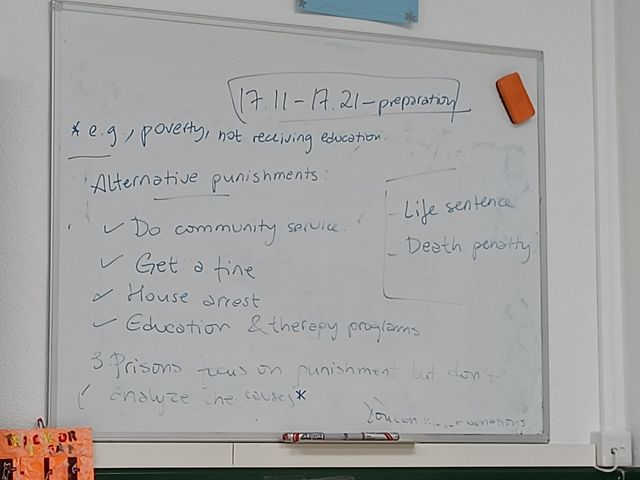 17.11-17.21-preparation
* e.g., poverty, not receiving education.
Alternative punishments:
✓ Do community service.
✓ Get a fine
✓ House arrest
✓ Education & therapy programs.
- Life sentence
- Death penalty
3. Prisons focus on punishment but don't
analyze the causes*
You can
TRICK OR